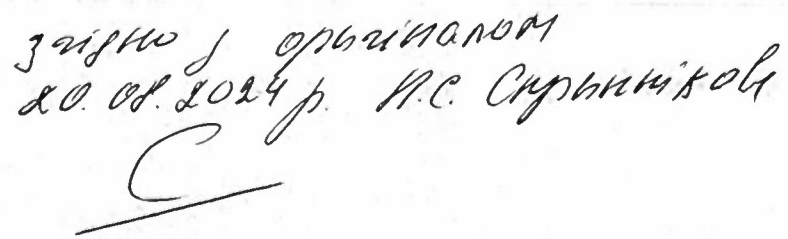 згідно з оригіналом
20.08.2024 р. Н.С. Скрыннікова